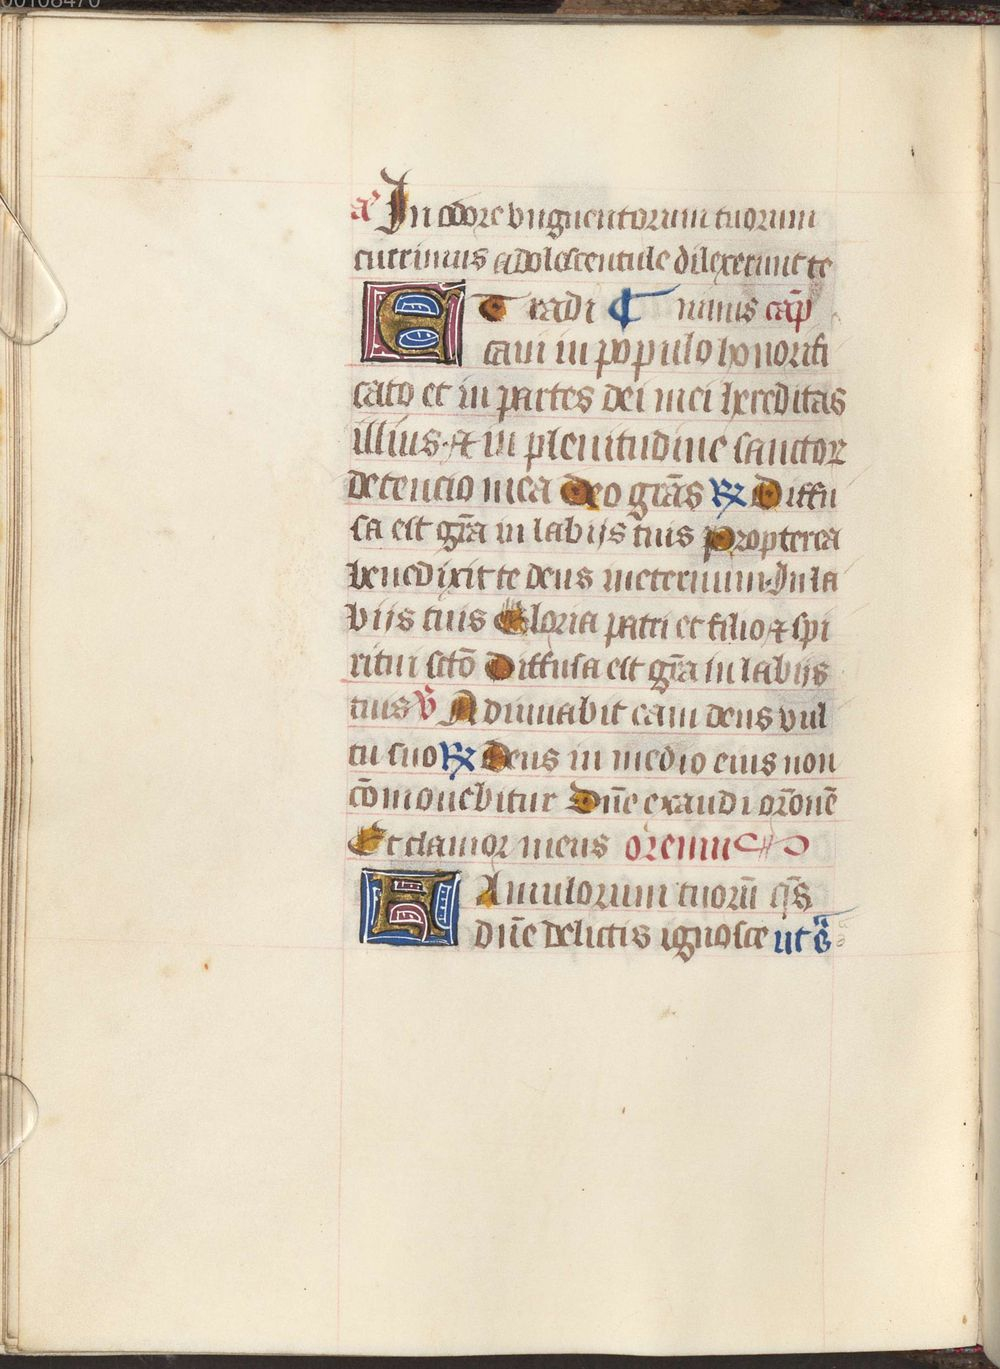 a In odore unguentorum tuorum
currimus adolescentule dilexerunt te
ET radi C nimus cap̄
caui in populo honorifi
cato et in partes dei mei hereditas
illius · ⁊ in plenitudine sanctoꝝ
detencio mea Deo grās ℞ Diffu
sa est grā in labijs tuis Propterea
benedixit te deus ineternum · In la
bijs tuis Gloria patri et filio ⁊ spi
ritui sctō Diffusa est grā in labijs
tuis ℣ Adiuuabit eam deus vul
tu suo ℞ Deus in medio eius non
cōmouebitur Dn̄e exaudi orōnē
Et clamor meus oremus
FAmulorum tuorū qs̄
dn̄e delictis ignosce ut s̄